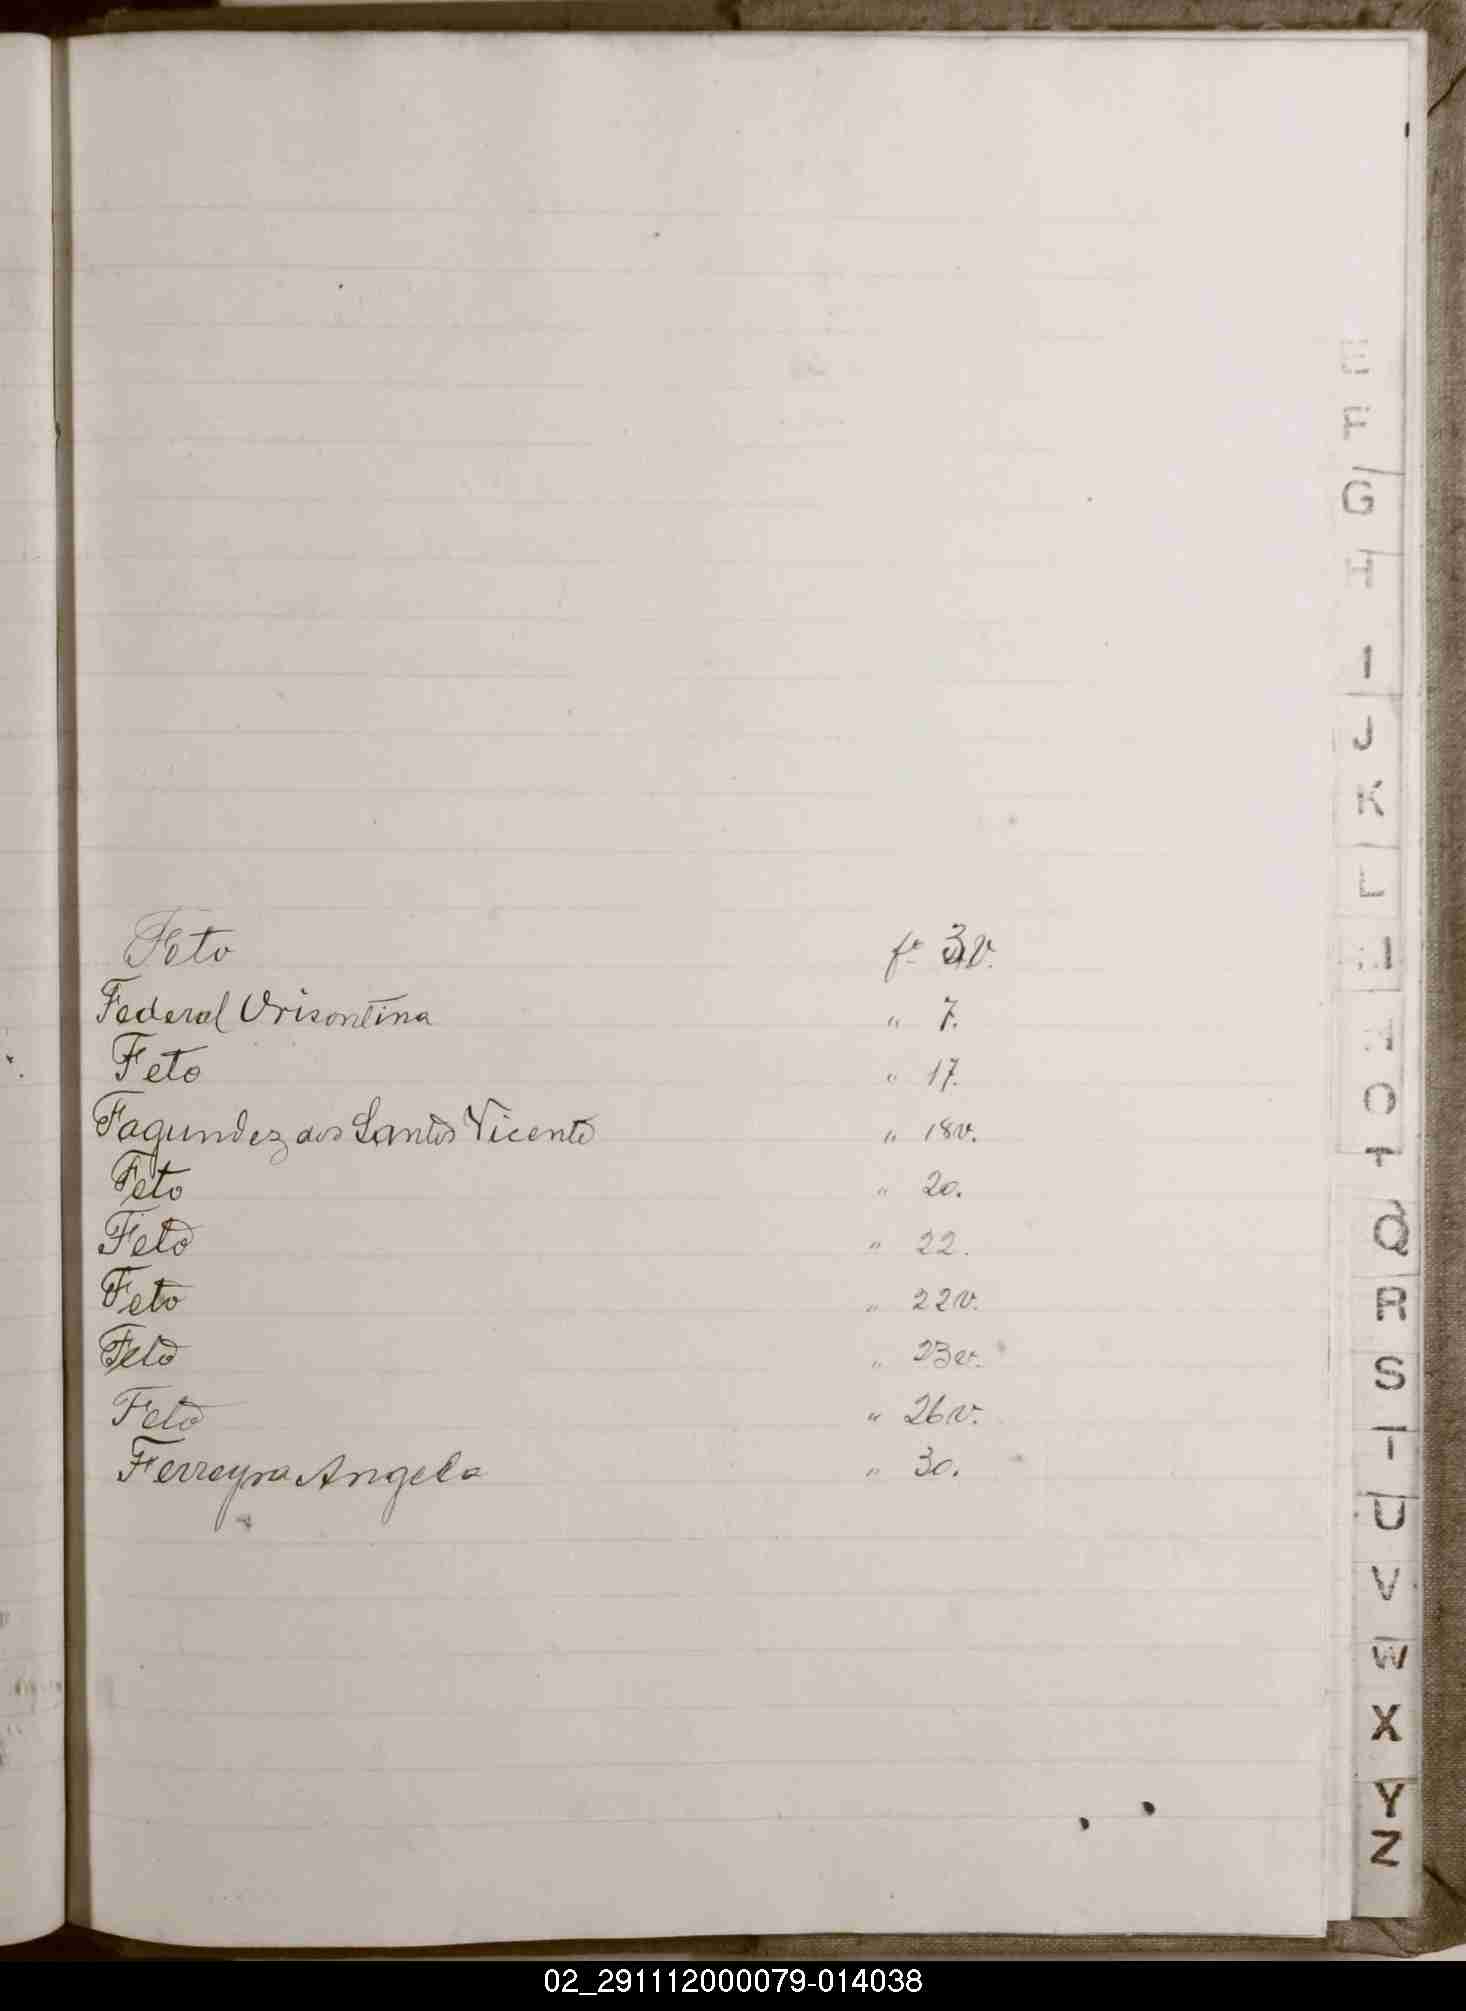 Feto fs 3v.
Federal Orisontina " 7.
Feto " 17.
Fagundez dos Santos Vicente " 18v.
Feto " 20.
Feto " 22.
Feto " 22v.
Feto " 23v.
Feto " 26v.
Ferreyra Angela " 30.
E
F
G
H
I
J
K
L
M
N
O
P
Q
R
S
T
U
V
W
X
Y
Z
02_291112000079-014038